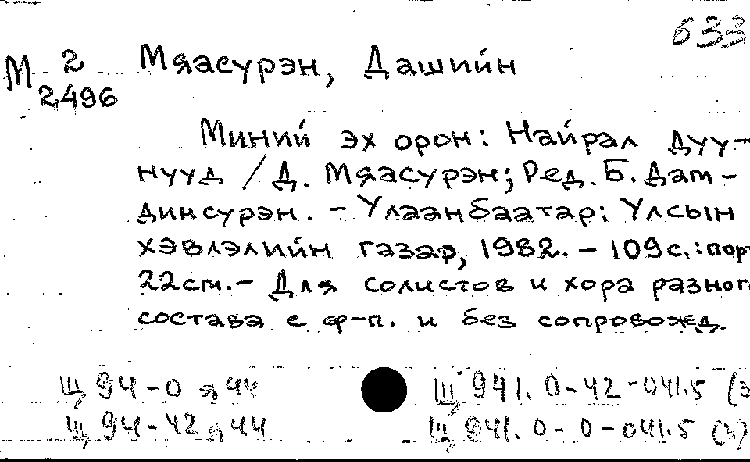 633
М 2/2496 Мяасурэн, Дашийн
Миний эх орон: Найрал дуу-
нууд / Д. Мяасурэн; Ред. Б. Дам-
динсурэн. - Улаанбаатар: Улсын
хэвлэлийн газар, 1982. - 109с.: пор
22см. - Для солистов и хора разног
состава с ф-п. и без сопровожд.
Щ 94-0 я 44 Щ 941.0-42-041.5 (3
Щ 94-42 я 44 Щ 941.0-0-041.5